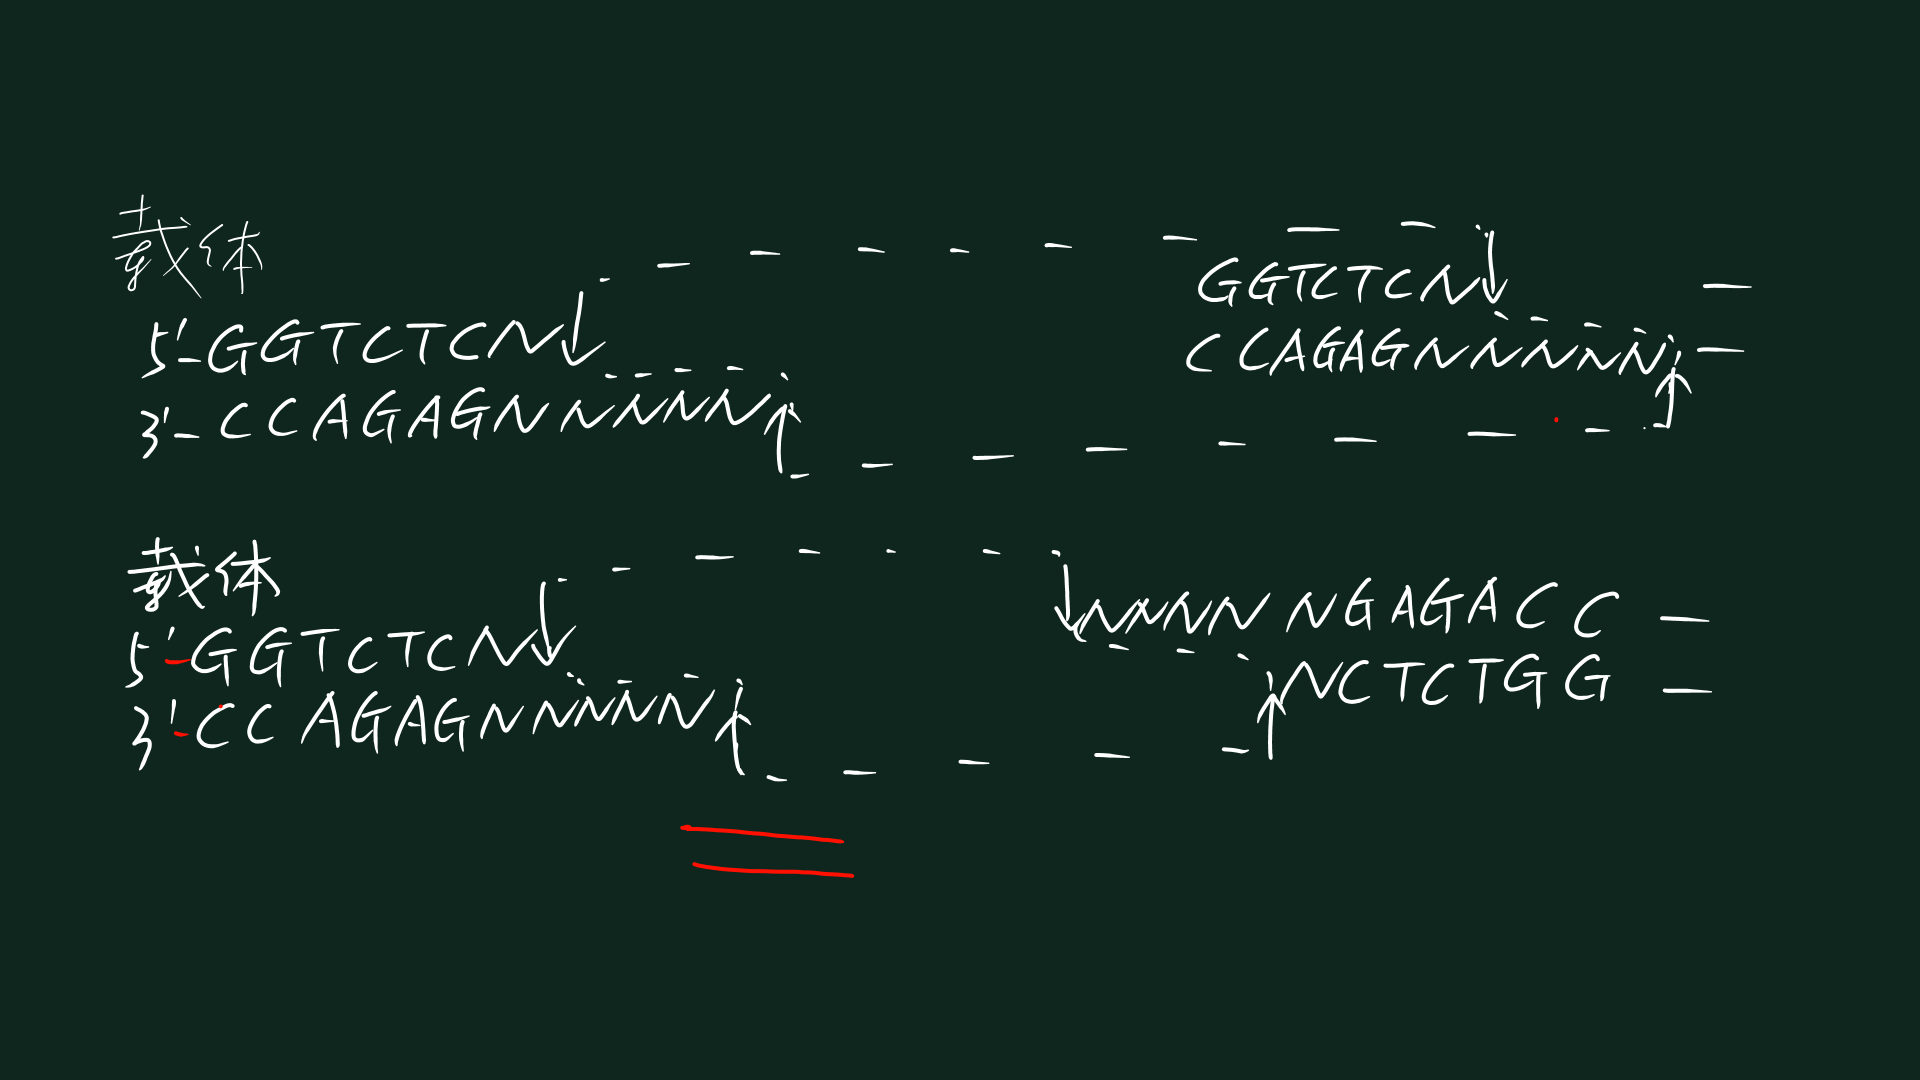 载体
GGTCTCN
5'-GGTCTCN
CCAGAGNNNNN
3'-CCAGAGNNNNN
载体
NNNNNGAGACC
5'-GGTCTCN
NCTCTGG
3'-CCAGAGNNNNN